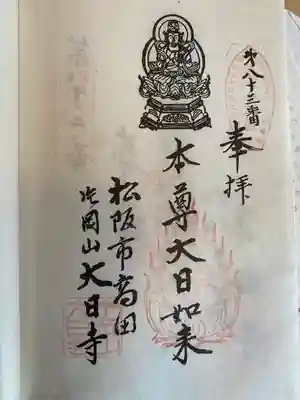 第八十三番
奉拝
本尊大日如来
松阪市高田
岡山大日寺